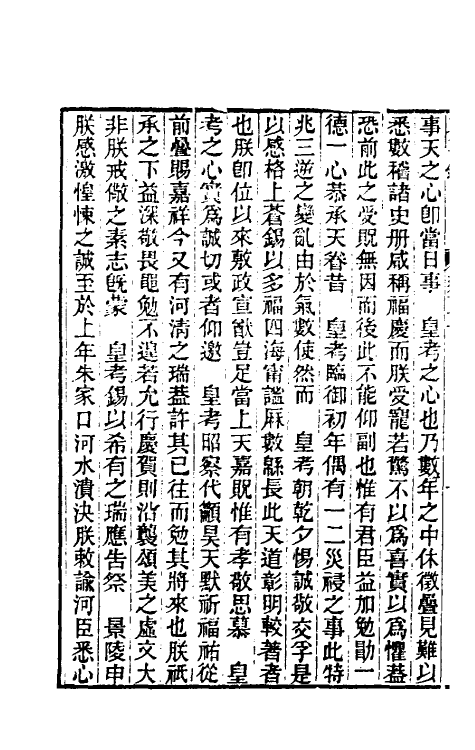 事天之心卽當日事　皇考之心也乃數年之中休徵疊見難以
悉數稽諸史册咸稱福慶而朕受寵若驚不以爲喜實以爲懼葢
恐前此之受旣無因而後此不能仰副也惟有君臣益加勉勖一
德一心恭承天眷昔　皇考臨御初年偶有一二災祲之事此特
兆三逆之變亂由於氣數使然而　皇考朝乾夕惕誠敬交孚是
以感格上蒼錫以多福四海甯謐厤數緜長此天道彰明較著者
也朕卽位以來敷政宣猷豈足當上天嘉貺惟有孝敬思慕　皇
考之心實爲誠切或者仰邀　皇考昭察代籲昊天默祈福祐從
前疊賜嘉祥今又有河清之瑞葢許其已往而勉其將來也朕祇
承之下益深敬畏黽勉不遑若允行慶賀則沿襲頌美之虛文大
非朕戒儆之素志旣蒙　皇考錫以希有之瑞應告祭　景陵申
朕感激惶悚之誠至於上年朱家口河水潰決朕敕諭河臣悉心